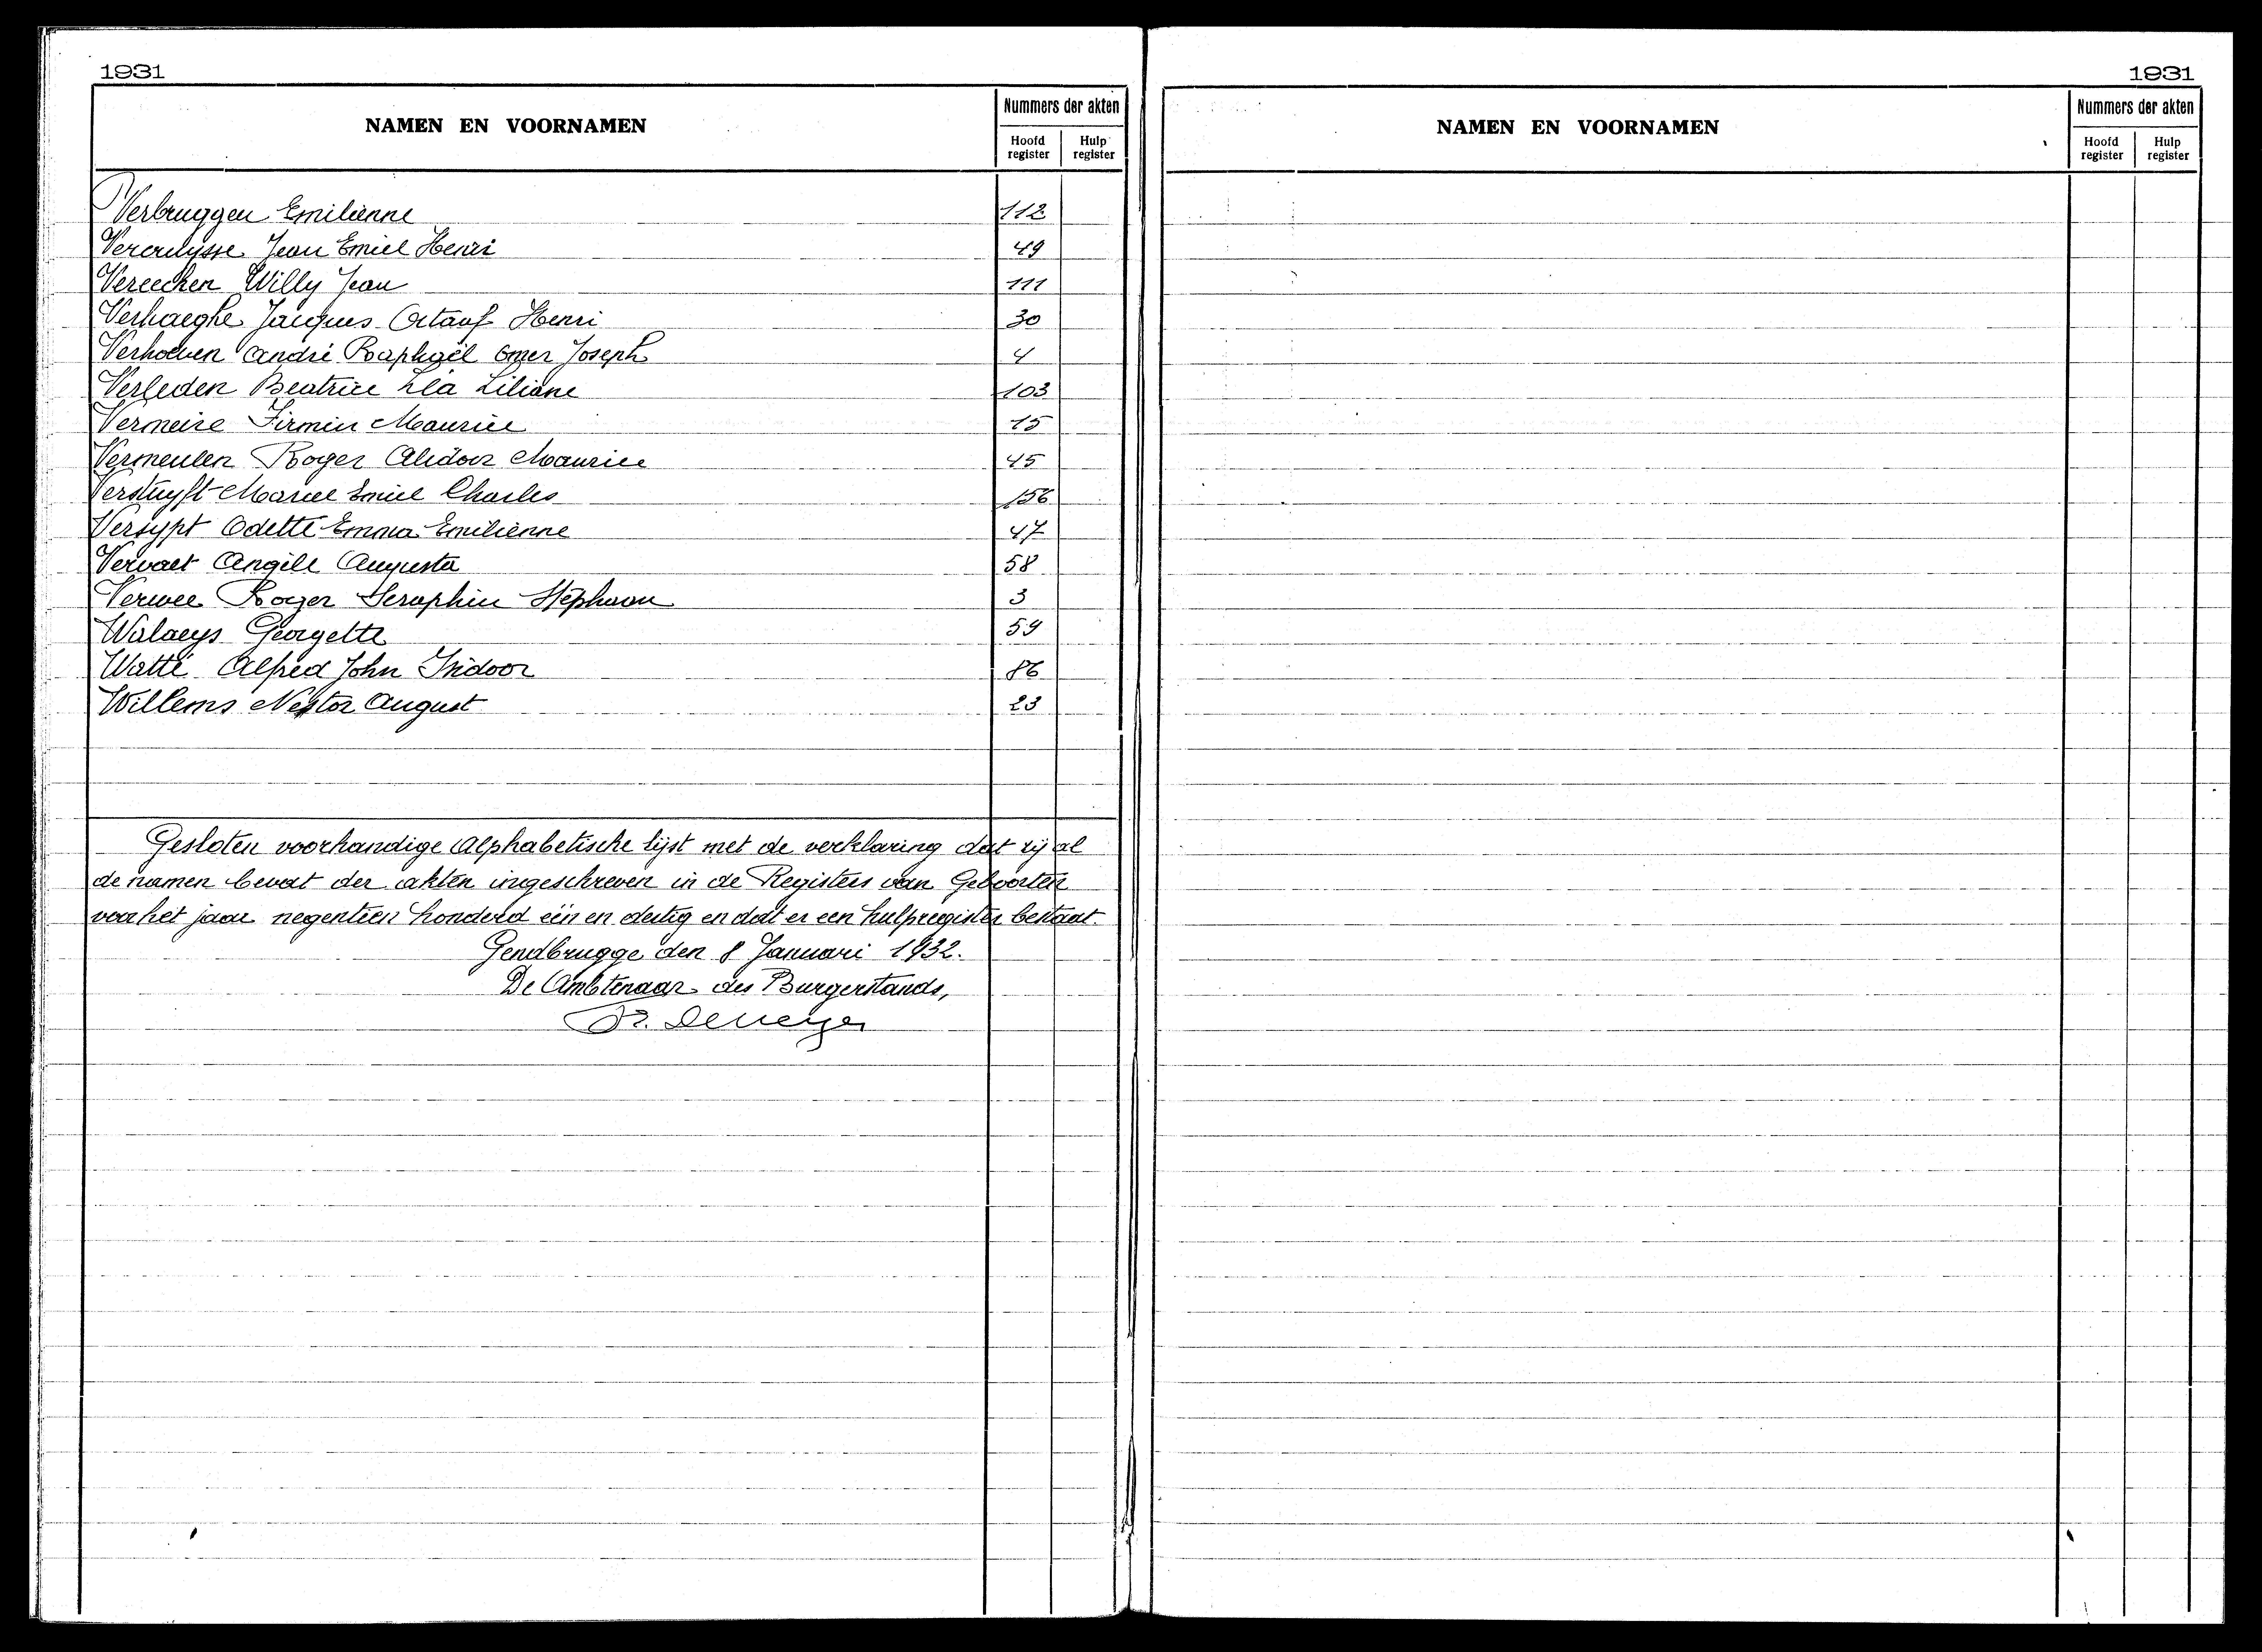 1931
NAMEN EN VOORNAMEN
Nummers der akten
Hoofd register
Hulp register
Verbruggen Emilienne 112
Vercruysse Jean Emiel Henri 49
Vereecken Willy Jean 111
Verhaeghe Jacques Octaaf Henri 30
Verhoeven André Raphaël Omer Joseph 4
Verleden Beatrice Léa Liliane 103
Vermeire Firmin Maurice 15
Vermeulen Roger Alidoor Maurice 45
Verstuyft Marcel Emiel Charles 156
Versypt Odette Emma Emilienne 47
Vervaet Angèle Augusta 58
Verwee Roger Seraphin Stéphaan 3
Walaeys Georgette 59
Watté Alfred John Isidoor 86
Willems Nestor August 23
Gesloten voorhandige Alphabetische lijst met de verklaring dat zij al
de namen bevat der akten ingeschreven in de Registers van Geboorten
voor het jaar negentien honderd één en dertig en dat er een hulpregister bestaat.
Gendbrugge den 8 Januari 1932.
De Ambtenaar des Burgerstands,
1931
NAMEN EN VOORNAMEN
Nummers der akten
Hoofd register
Hulp register